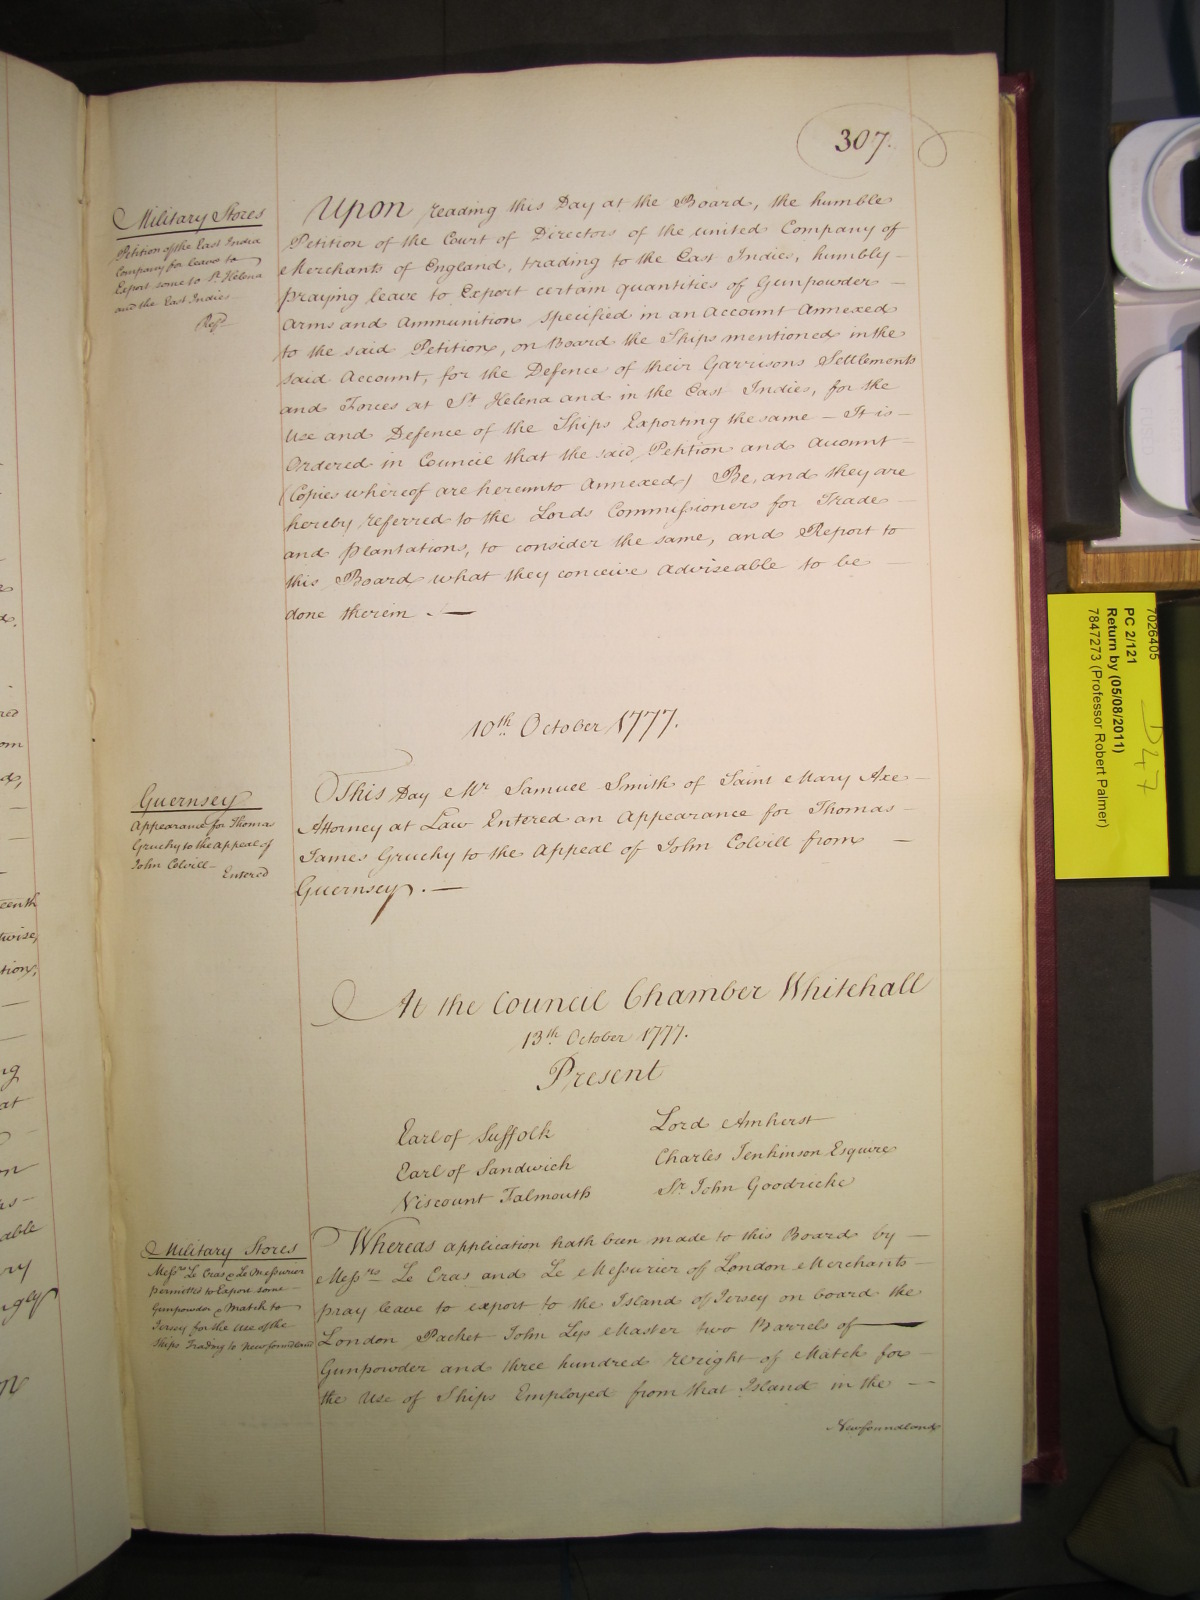 307.
Military Stores
Petition of the East India
Company for leave to
Export some to St. Helena
and the East Indies
Refd.
Upon reading this Day at the Board, the humble
Petition of the Court of Directors of the united Company of
Merchants of England, trading to the East Indies, humbly
praying leave to Export certain quantities of Gunpowder
Arms and Ammunition specified in an Account Annexed
to the said Petition, on Board the Ships mentioned in the
said Account, for the Defence of their Garrisons Settlements
and Forces at St Helena and in the East Indies, for the
Use and Defence of the Ships Exporting the same — It is
Ordered in Council that the said Petition and Account
(Copies whereof are hereunto Annexed) Be, and they are
hereby referred to the Lords Commissioners for Trade
and Plantations, to consider the same, and Report to
this Board what they conceive adviseable to be
done therein .—
10th. October 1777.
Guernsey
Appearance for Thomas
Gruchy to the Appeal of
John Colvill
Entered
This Day Mr. Samuel Smith of Saint Mary Axe
Attorney at Law Entered an Appearance for Thomas
James Gruchy to the Appeal of John Colvill from
Guernsey.—
At the Council Chamber Whitehall
13th. October 1777.
Present
Earl of Suffolk
Earl of Sandwich
Viscount Falmouth
Lord Amherst
Charles Jenkinson Esquire
Sr. John Goodricke
Military Stores
Messrs Le Cras & Le Messurier
permitted to Export some
Gunpowder & Match to
Jersey for the Use of the
Ships Trading to Newfoundland
Whereas application hath been made to this Board by
Messrs. Le Cras and Le Messurier of London Merchants
pray leave to export to the Island of Jersey on board the
London Packet John Lys Master two Barrels of
Gunpowder and three hundred weight of Match for
the Use of Ships Employed from that Island in the
Newfoundland
7026405
PC 2/121
Return by (05/08/2011)
7847273 (Professor Robert Palmer)
D47